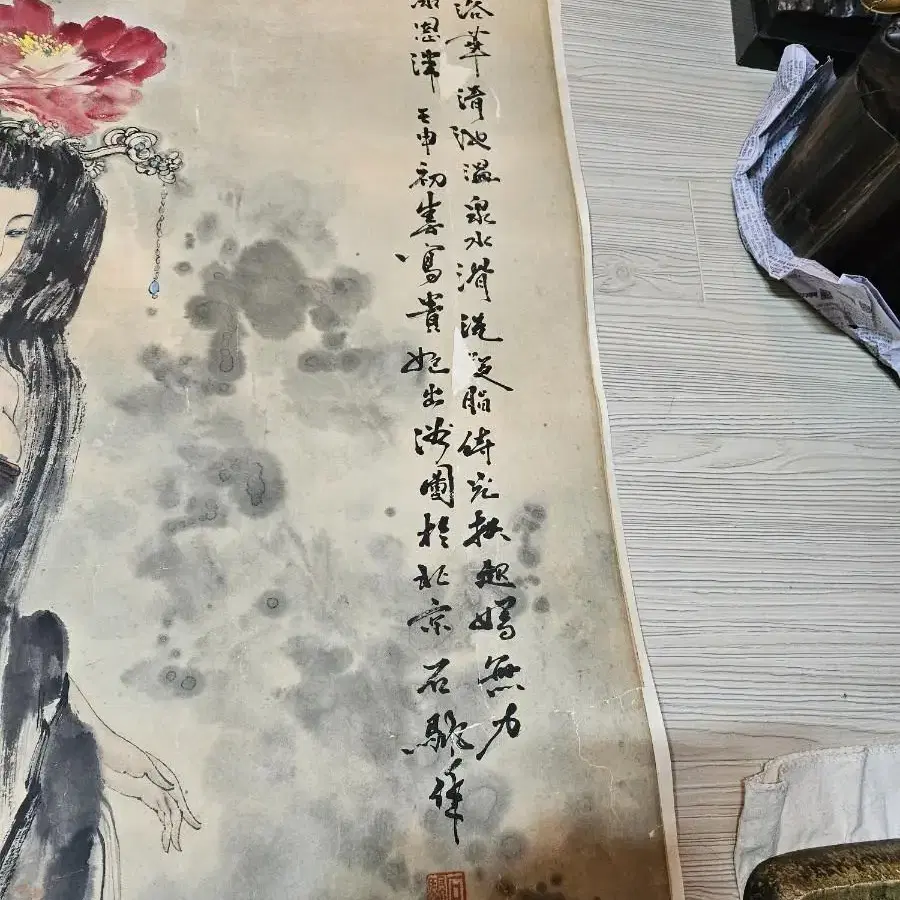 浴華清池溫泉水滑洗凝脂侍兒扶起嬌無力
恩澤壬申初春寫貴妃出浴圖於北京石